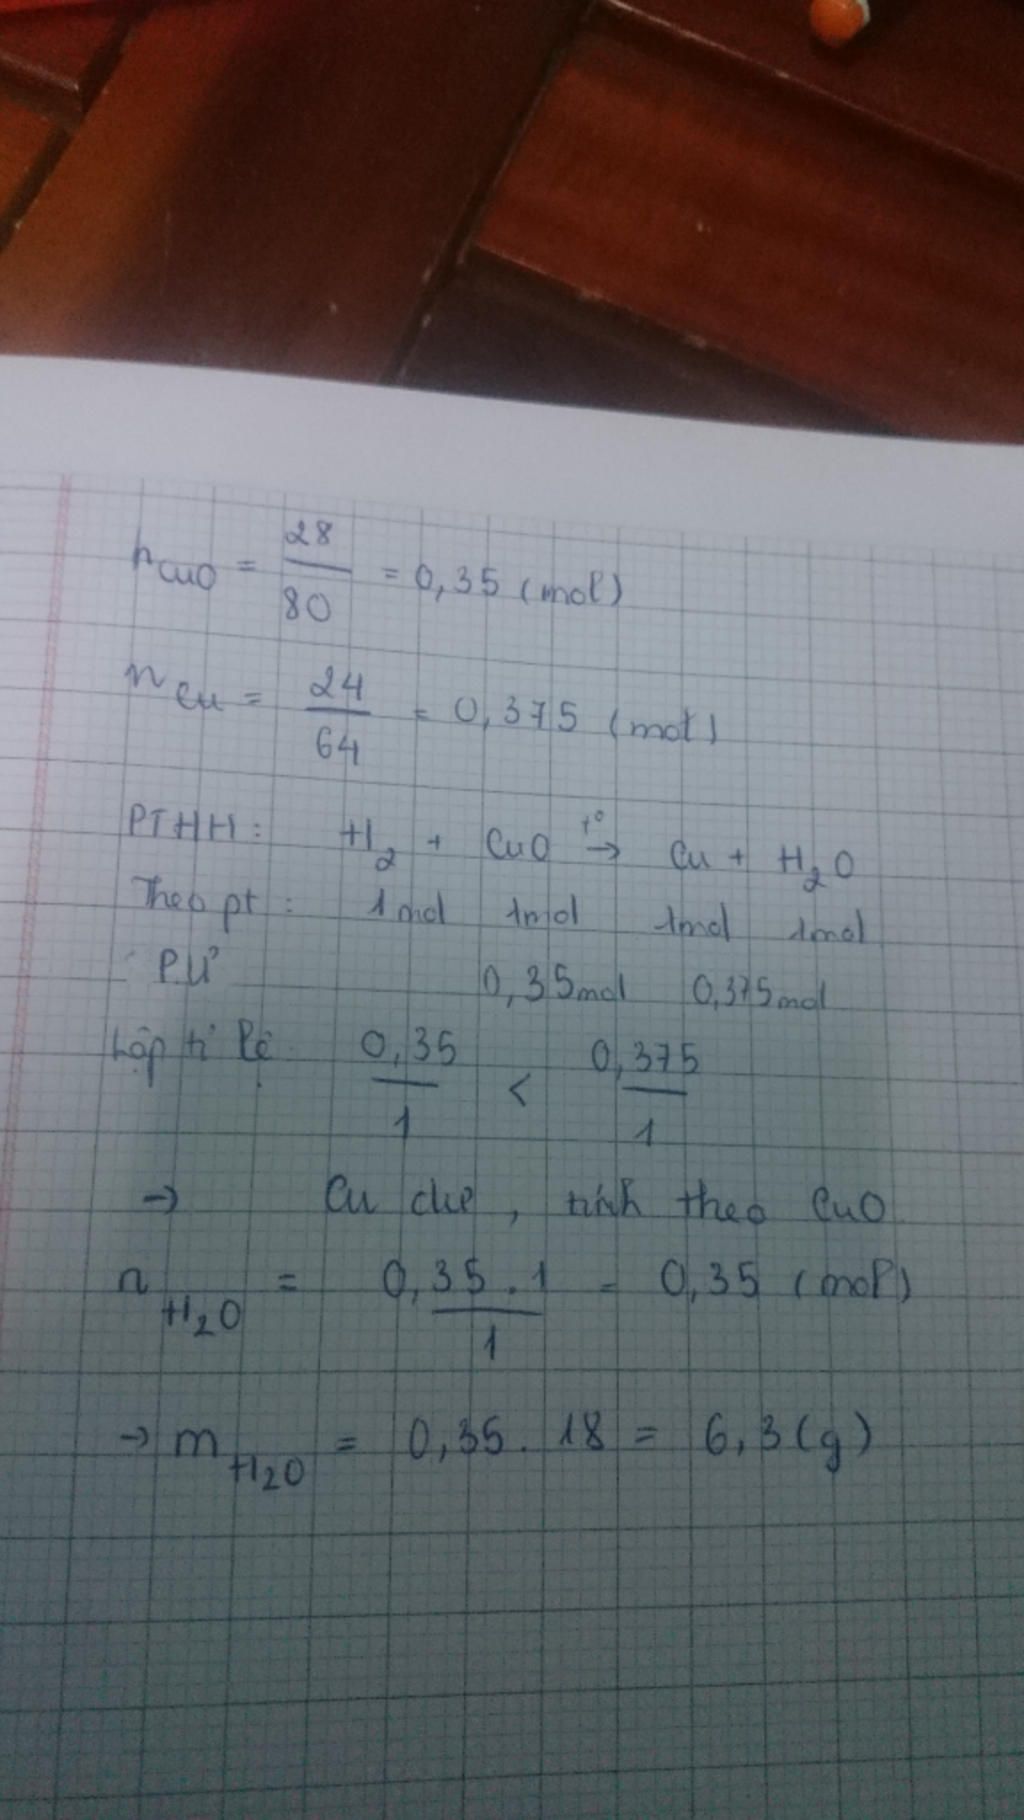 nCuO = 28/80 = 0,35 (mol)
nCu = 24/64 = 0,375 (mol)
PTHH: H2 + CuO t°→ Cu + H2O
Theo pt: 1mol 1mol 1mol 1mol
PƯ 0,35mol 0,375mol
Lập tỉ lệ 0,35/1 < 0,375/1
→ Cu dư, tính theo CuO
nH2O = 0,35.1/1 = 0,35 (mol)
→ mH2O = 0,35.18 = 6,3(g)